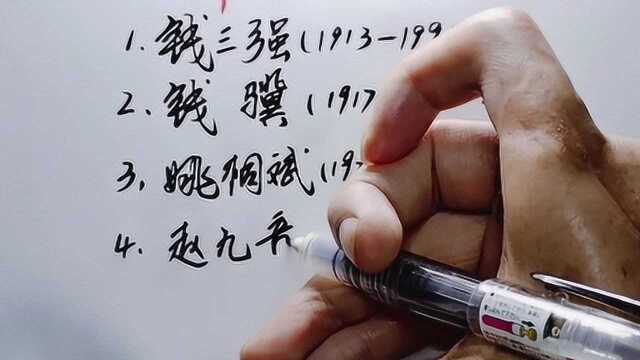 1. 钱三强(1913-199
2. 钱骥(1917
3. 姚桐斌(192
4. 赵九章